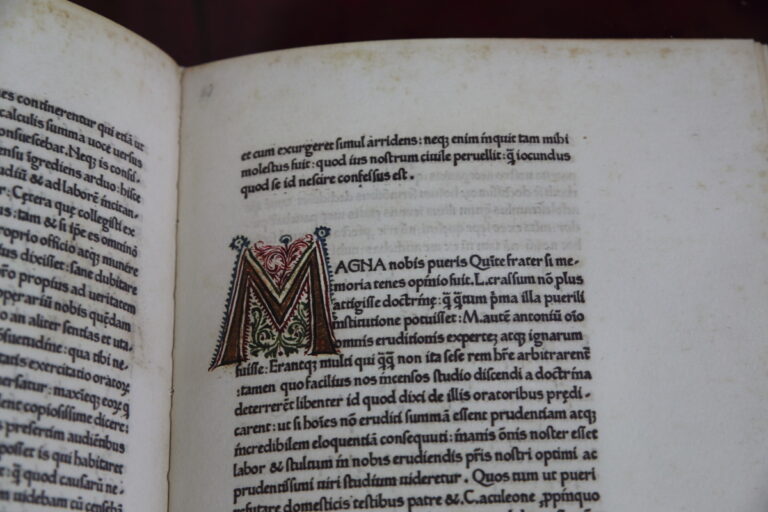 es continerentur qui etiā ut
calculis summa uoce uersus
onsuescebat. Neq; is consil
ensu igrediens arduo: hisce
udiū & ad laborē incitan-
: Cętera quę collegisti ex
us: tam & si ip̄e es omnino
proprio officio atq; munere
us dixisset: sane dubitare
ēro propius ad ueritatem
operariū nobis quēdam
on an aliter sentias et uta-
osuetudine: qua tibi ne-
tatis exercitatio oratoꝝ
ersatur: maxieq; eoꝝ q
lent copiosissime dicere:
s presertim audientibus
posset is qui habitaret
: q̄ quod causarū ne-
uidebam cū
et cum exurgeret simul arridens: neq; enim inquit tam mihi
molestus fuit: quod ius nostrum ciuile peruellit: q̄ iocundus
quod se id nescire confessus est.
MAGNA nobis pueris Qūite frater si me-
moria tenes opinio fuit. L. crassum nō plus
attigisse doctrinę: q̄ q̄tum p̄ma illa puerili
institutione potuisset: M. autē antoniū oīo
omnis eruditionis expertē atq; ignarum
fuisse: Erantq; multi qui q̄q̄ non ita sese rem hr̄e arbitrarent̄
:tamen quo facilius nos incensos studio discendi a doctrina
deterrerēt libenter id quod dixi de illis oratoribus prędi-
carent: ut si hoīes nō eruditi summā essent prudentiam atq;
incredibilem eloquentiā consequuti: inanis ōnis noster esset
labor & stultum in nobis erudiendis pr̄is nostri optimi ac
prudentissimi uiri studium uideretur. Quos tum ut pueri
refutare domesticis testibus patre &. C. aculeone ꝓpinquo